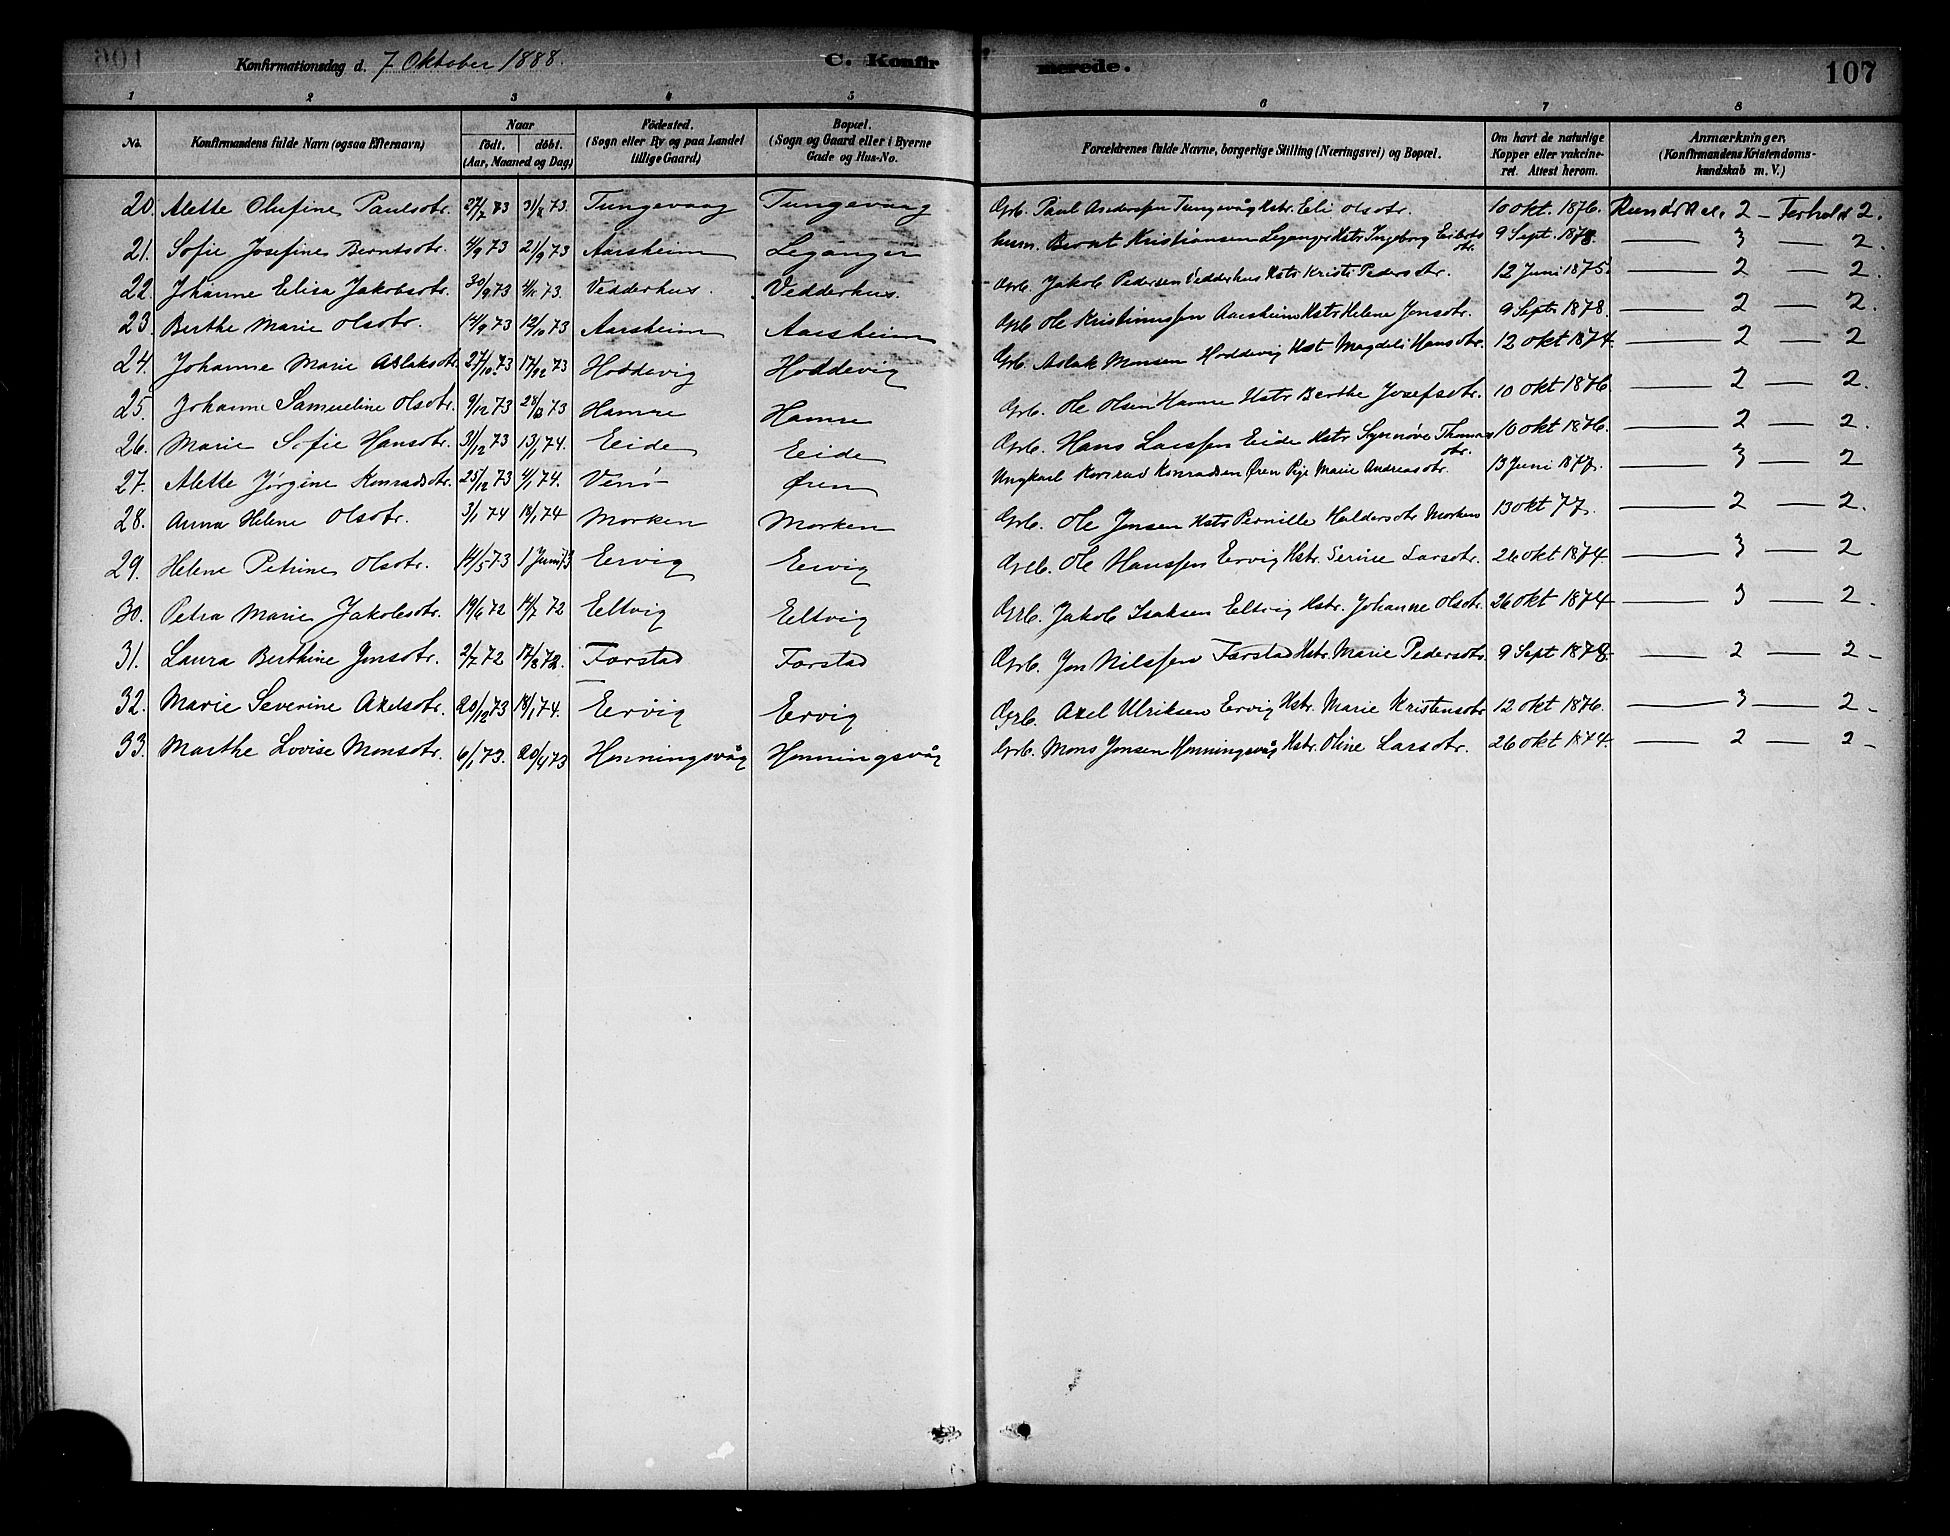 Konfirmationsdag d. 7 Oktober 1888. C. Konfirmerede. 107
1 2 3 4 5 6 7 8
No. Konfirmandens fulde Navn (ogsaa Efternavn) Naar født. døbt. (Aar, Maaned og Dag) Fødested. (Sogn eller By og paa Landet tillige Gaard) Bopæl. (Sogn og Gaard eller i Byerne Gade og Hus-No. Forældrenes fulde Navne, borgerlige Stilling (Næringsvei) og Bopæl. Om havt de naturlige Kopper eller vakcineret. Attest herom. Anmærkninger, (Konfirmandens Kristendomskundskab m. V.)
20. Alette Olufine Paulsdtr. 27/7 73 31/8 73. Tungevaag Tungevaag Grb. Paul Andersen Tungevåg Hstr. Eli Olsdtr. 10 okt. 1876. Kundskab. 2 – Forhold 2.
21. Sofie Josefine Berntsdtr. 4/9 73 21/9 73 Aarsheim Leganger Husm. Bernt Kristiansen Leganger Hstr Ingeborg dtr. 9 Sept. 1878. — 3 — 2.
22. Johanne Elisa Jakobsdtr. 30/9 73 73. Vedderhus. Vedderhus. Grb. Jakob Pedersen Vedderhus Hstr Kristi Pedersdtr. 12 Juni 1875 — 2 — 2.
23. Berthe Marie Olsdtr. 14/9 73 12/10 73 Aarsheim Aarsheim Grb. Ole Kristianssen Aarsheim Hstr Helene Jonsdtr. 9 Septr 1878. — 2 — 2.
24. Johanne Marie Aslaksdtr. 27/10 73 17/12 73 Hoddevig Hoddevig Grb. Aslak Monsen Hoddevig Hst Magdeli Hansdtr. 12 okt 1874. — 2 — 2
25. Johanne Samueline Olsdtr. 9/12 73 28/ 73 Hamre Hamre Grb. Ole Olsen Hamre Hstr Berthe Josefsdtr. 10 okt 1876 — 2 — 2.
26. Marie Sofie Hansdtr. 31/12 73 13/1 74. Eide Eide Grb. Hans Larssen Eide Hstr Synnøve Thomasdtr. 10 okt 1876. — 2 — 2.
27. Alette Jørgine Konradsdtr. 25/12 73 4/1 74. Øren Ungkarl Konrad Konradsen Øren Pige Marie Andreasdtr. 13 Juni 1877. — 3 — 2
28. Anna Helene Olsdtr. 3/1 74 18/1 74 Morken Morken Grb. Ole Jensen Hstr Pernille Haldorsdtr Morken 13 okt 77. — 2 — 2.
29. Helene Petrine Olsdtr. 14/5 73 1 Juni 73 Ervig Ervig Grb. Ole Hanssen Ervig Hstr. Serine Larsdtr. 26 okt 1874. — 3 — 2
30. Petra Marie Jakobsdtr. 19/6 72 14/7 72 Eltvig Eltvig Grb. Jakob Isaksen Eltvig Hstr. Johanne Olsdtr. 26 okt 1874 — 3 — 2.
31. Laura Berthine Jonsdtr. 2/7 72 17/8 72. Forstad Forstad Grb. Jon Nilssen Forstad Hstr. Marie Pedersdtr. 9 Sept 1878 — 2 — 2 –
32. Marie Severine Axelsdtr. 20/12 73 18/1 74. Ervig Ervig Grb. Axel Ulriksen Ervig Hstr. Marie Kristensdtr 12 okt 1876. — 3 — 2 –
33. Marthe Lovise Monsdtr. 6/1 73. 20/4 73 Honningsvåg Honningsvåg Grb. Mons Jonsen Honningsvåg Hstr. Oline Larsdtr. 26 okt 1874. — 2 — 2 –